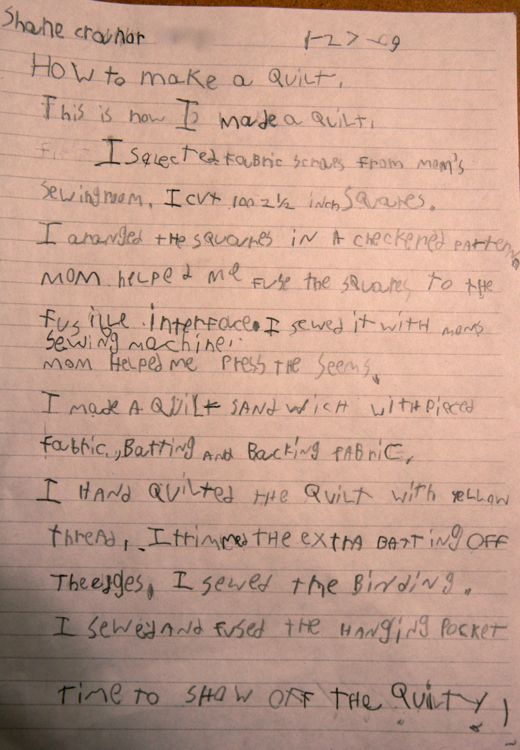 Shane
1-27-09
HOW to make a QUILT.
This is how I made a QUILT.
I Selected FABric scraps From mom's
sewingroom. I cut 100 2 1/2 inch Squares.
I aranged tHe SQuares iN A checkered pAttern
MOM helped me FUSe the SQuares to the
fusible interface. I sewed it with moms
sewing machine.
mom Helped me Press tHe Seems.
I made A QUILt SANdwich with Pieced
fabric, Batting AND BacKing FABriC.
I HAND QUilted tHe QUilt with yellow
thread. I trimmed tHe extrA BATTing OFF
The edges. I sewed the Binding.
I sewed AND fused the HANging Pocket
time to SHow OFF tHe QUILT!